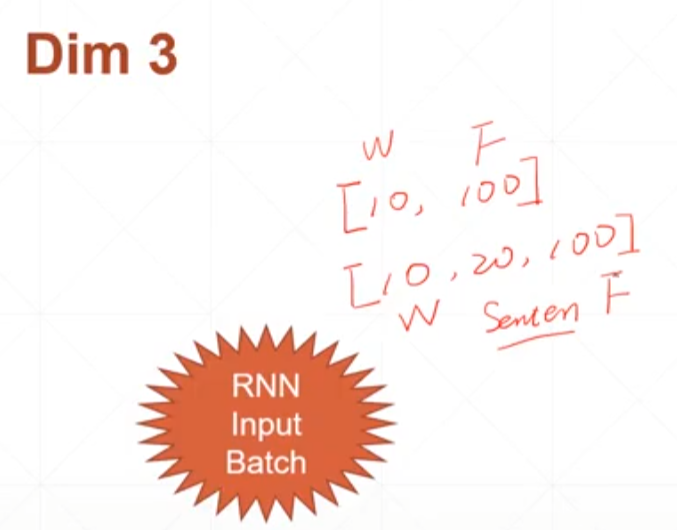 Dim 3
W F
[10, 100]
[10, 20, 100]
W Senten F
RNN
Input
Batch